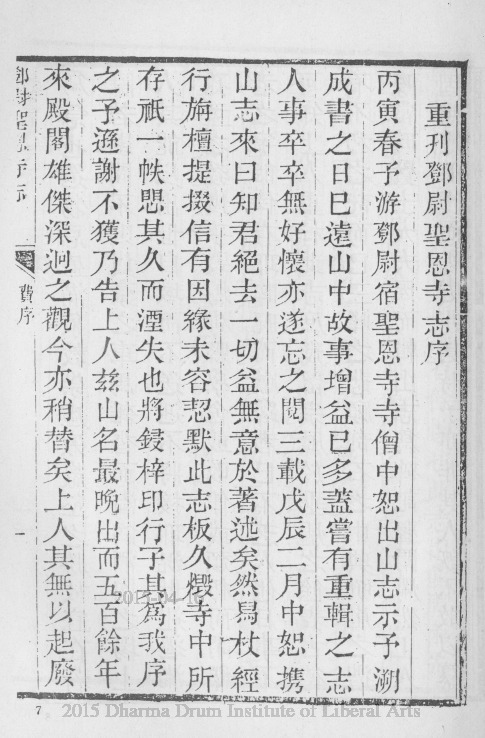 重刊鄧尉聖恩寺志序
丙寅春予游鄧尉宿聖恩寺寺僧中恕出山志示予溯
成書之日已遠山中故事增益已多蓋嘗有重輯之志
人事卒卒無好懷亦遂忘之閱三載戊辰二月中恕攜
山志來曰知君絕去一切益無意於著述矣然舄杖經
行旃檀提掇信有因緣未容恝默此志板久燬寺中所
存祇一帙愳其久而湮失也將鋟梓印行子其為我序
之予遜謝不獲乃告上人玆山名最晚出而五百餘年
來殿閣雄傑深迥之觀今亦稍替矣上人其無以起廢
鄧尉聖恩寺志
費序
一
7
2015-04-16
2015 Dharma Drum Institute of Liberal Arts